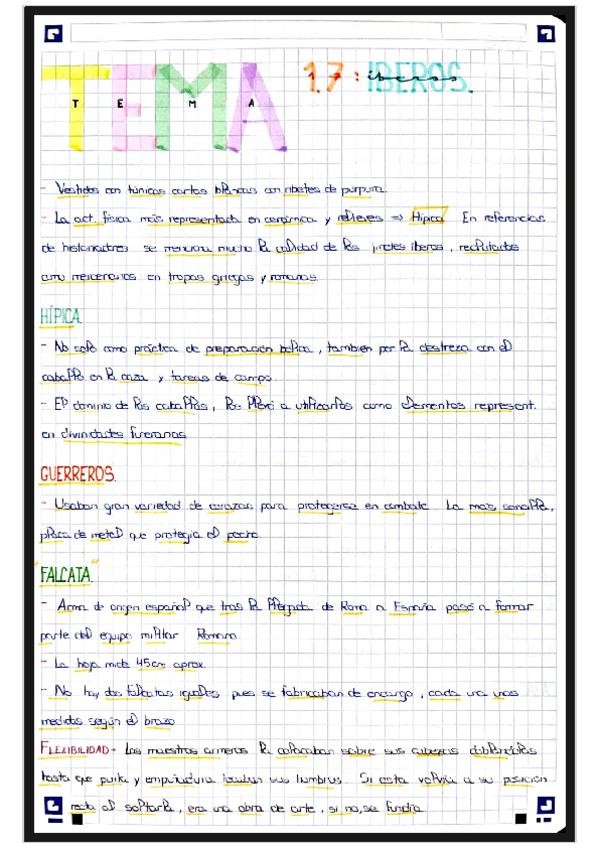 TEMA 17: IBEROS.
T E M A
- Vestidos con túnicas cortas blancas con ribetes de púrpura.
- La act. física más representada en cerámica y relieves => Hípica. En referencias
de historiadores se menciona mucho la calidad de los jinetes iberos, reclutados
como mercenarios en tropas griegas y romanas.
HÍPICA.
- No solo como práctica de preparación bélica, también por la destreza con el
caballo en la caza y tareas de campo.
- El dominio de los caballos, los llevó a utilizarlos como elementos represent.
en divinidades funerarias
GUERREROS.
- Usaban gran variedad de corazas para protegerse en combate. La más sencilla,
placa de metal que protegía el pecho.
"FALCATA."
- Arma de origen español que tras la llegada de Roma a España pasó a formar
parte del equipo militar Romano
- La hoja mide 45cm aprox.
- No hay dos falcatas iguales pues se fabricaban de encargo, cada una unas
medidas según el brazo
FLEXIBILIDAD→ Los maestros armeros la colocaban sobre sus cabezas doblándolas
hasta que punta y empuñadura tocaban sus hombros. Si esta volvía a su posición
recta al soltarla, era una obra de arte, si no, se fundía.